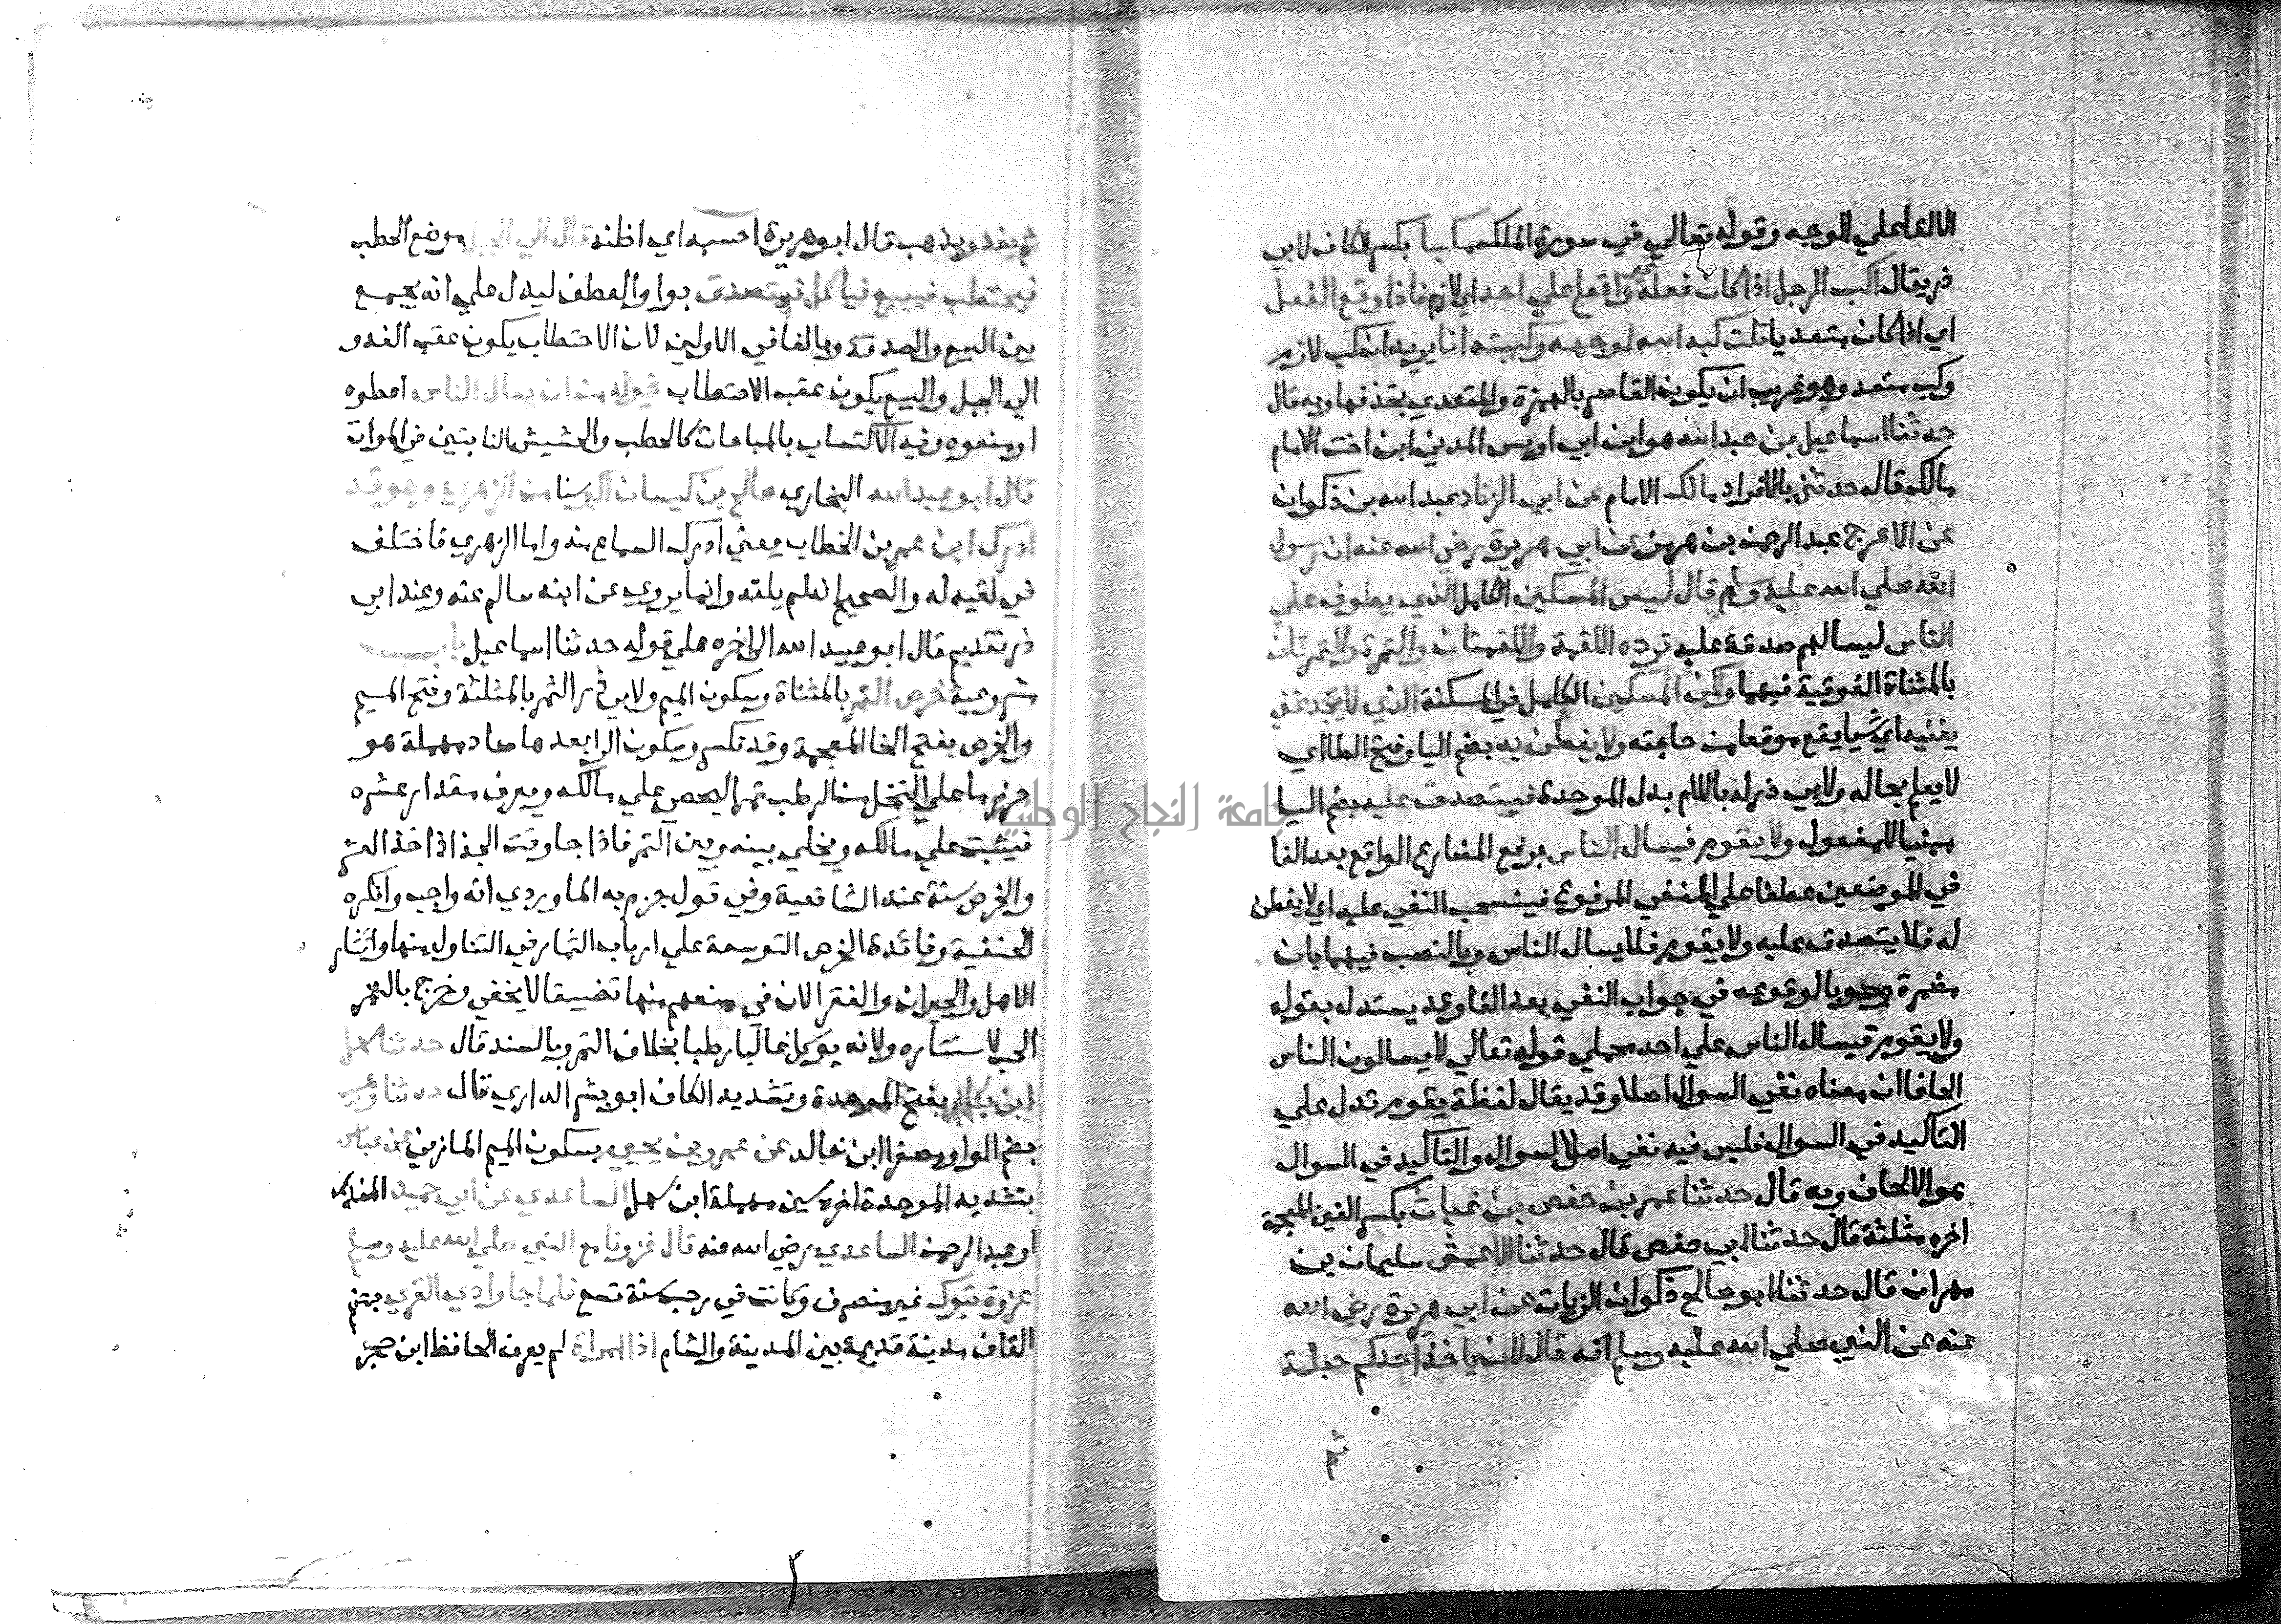 الالقا علي الوجه وقوله تعالي في سورة الملك مكبا بكسر الكاف لابي
ذر يقال اكب الرجل اذا كان فعله غير واقع علي احد اي لازم فاذا وقع الفعل
اي اذا كان متعديا قلت كبه الله لوجهه وكببته انا يريد ان كب لازم
وكب متعد وهو غريب ان يكون القاصر بالهمزة والمتعدي بحذفها وبه قال
حدثنا اسماعيل بن عبد الله هو ابن ابي اويس المدني ابن اخت الامام
مالك قال حدثني بالافراد مالك الامام عن ابي الزناد عبد الله بن ذكوان
عن الاعرج عبد الرحمن بن هرمز عن ابي هريرة رضي الله عنه ان رسول
الله صلي الله عليه وسلم قال ليس المسكين الكامل الذي يطوف علي
الناس ليسالهم صدقة عليه ترده اللقمة واللقمتان والتمرة والتمرتان
بالمثناة الفوقية فيهما ولكن المسكين الكامل في المسكنة الذي لا يجد غني
يغنيه اي شيا يقع موقعا من حاجته ولا يفطن به بضم اليا وفتح الطا اي
لا يعلم بحاله ولابي ذر له باللام بدل الموحدة فيتصدق عليه بضم اليا
مبنيا للمفعول ولا يقوم فيسال الناس برفع المضارع الواقع بعد الفا
في الموضعين عطفا علي المنفي المرفوع فينسحب النفي عليه اي لا يفطن
له فلا يتصدق عليه ولا يقوم فلا يسال الناس وبالنصب فيهما بان
مضمرة وجوبا لوقوعه في جواب النفي بعد الفا وقد يستدل بقوله
ولا يقوم فيسال الناس علي احد محملي قوله تعالي لا يسالون الناس
الحافا ان معناه نفي السوال اصلا وقد يقال لفظة يقوم تدل علي
التاكيد في السوال فليس فيه نفي اصل السوال والتاكيد في السوال
هو الالحاف وبه قال حدثنا عمر بن حفص بن غياث بكسر الغين المعجمة
اخره مثلثة قال حدثنا ابي حفص قال حدثنا الاعمش سليمان بن
مهران قال حدثنا ابو صالح ذكوان الزيات عن ابي هريرة رضي الله
عنه عن النبي صلي الله عليه وسلم انه قال لان ياخذ احدكم حبله
ثم
ثم يغدو يذهب قال ابو هريرة احسبه اي اظنه قال الي الجبل موضع الحطب
فيحتطب فيبيع فياكل فيتصدق بواو العطف ليدل علي انه يجمع
بين البيع والصدقة وبالفا في الاولين لان الاحتطاب يكون عقب الغدو
الي الجبل والبيع يكون عقب الاحتطاب خير له من ان يسال الناس اعطوه
او منعوه وفيه الاكتساب بالمباحات كالحطب والحشيش النابتين في الموات
قال ابو عبد الله البخاري صالح بن كيسان اكبر سنا من الزهري وهو قد
ادرك ابن عمر بن الخطاب يعني ادرك السماع منه واما الزهري فاختلف
في لقيه له والصحيح انه لم يلقه وانما يروي عن ابنه سالم عنه وعند ابي
ذر تقديم قال ابو عبد الله الي اخره علي قوله حدثنا اسماعيل باب
مشروعية خرص التمر بالمثناة وسكون الميم ولابي ذر الثمر بالمثلثة وفتح الميم
والخرص بفتح الخا المعجمة وقد تكسر وسكون الرا بعدها صاد مهملة هو
حزر ما علي النخل من الرطب تمرا ليحصي علي مالكه ويعرف مقدار عشره
فيثبت علي مالكه ويخلي بينه وبين التمر فاذا جا وقت الجذاذ اخذ العشر
والخرص سنة عند الشافعية وفي قول جزم به الماوردي انه واجب وانكره
الحنفية وفائدة الخرص التوسعة علي ارباب الثمار في التناول منها وايثار
الاهل والجيران والفقرا لان في منعهم منها تضييقا لا يخفي وخرج بالثمر
الحب لاستتاره ولانه يوكل غالبا رطبا بخلاف التمر وبالسند قال حدثنا سهل
ابن بكار بفتح الموحدة وتشديد الكاف ابو بشر الداري قال حدثنا وهيب
بضم الواو مصغرا ابن خالد عن عمرو بن يحيي بسكون الميم المازني عن عباس
بتشديد الموحدة اخره سين مهملة ابن سهل الساعدي عن ابي حميد المنذر
او عبد الرحمن الساعدي رضي الله عنه قال غزونا مع النبي صلي الله عليه وسلم
غزوة تبوك غير منصرف وكانت في رجب سنة تسع فلما جا وادي القري بضم
القاف مدينة قديمة بين المدينة والشام اذا امراة لم يعرف الحافظ ابن حجر
جامعة النجاح الوطنية